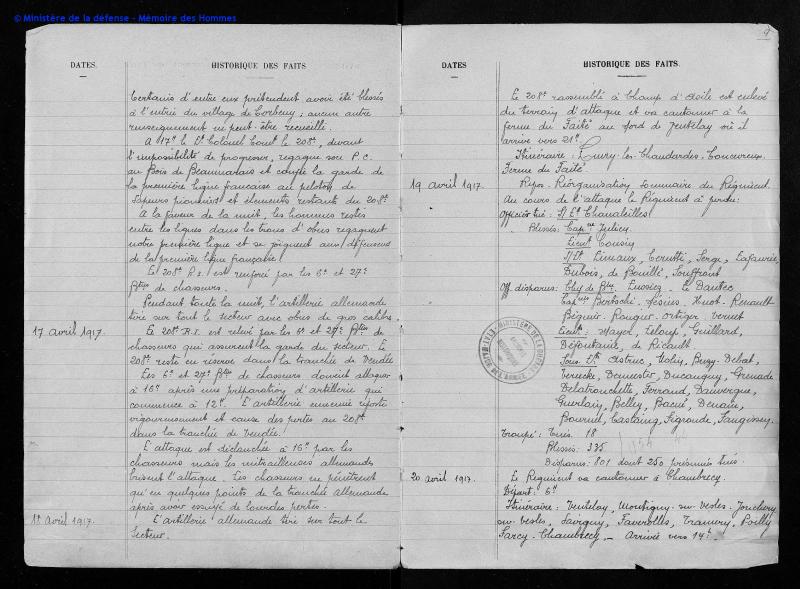 © Ministère de la défense - Mémoire des Hommes
DATES.
HISTORIQUE DES FAITS.
Certains d'entre eux prétendent avoir été blessés
à l'entrée du village de Corbeny ; aucun autre
renseignement ne peut-être recueilli.
A 17h le Lt Colonel Comt le 208e, devant
l'impossibilité de progresser, regagne son P.C.
au Bois de Beaumarais et confie la garde de
la première ligne française au peloton de
sapeurs pionniers et éléments restant du 208e
A la faveur de la nuit, les hommes restés
entre les lignes dans les trous d'obus regagnent
notre première ligne et se joignent aux défenseurs
de la première ligne française.
Le 208e R.I. est renforcé par les 6e et 27e
Btns de chasseurs.
Pendant toute la nuit, l'artillerie allemande
tire sur tout le secteur avec obus de gros calibre.
17 avril 1917.
Le 208e R.I. est relevé par les 6e et 27e Btns de
chasseurs qui assurent la garde du secteur. Le
208e reste en réserve dans la tranchée de Vendée
Les 6e et 27e Btns de chasseurs doivent attaquer
à 16h après une préparation d'artillerie qui
commence à 12h. L'artillerie ennemie riposte
vigoureusement et cause des pertes au 208e
dans la tranchée de Vendée.
L'attaque est déclanchée à 16h par les
chasseurs mais les mitrailleuses allemandes
brisent l'attaque. Les chasseurs ne pénètrent
qu'en quelques points de la tranchée allemande
après avoir essuyé de lourdes pertes.
18 avril 1917.
L'artillerie allemande tire sur tout le
secteur.
9
DATES
HISTORIQUE DES FAITS.
Le 208e rassemblé à Champ d'Asile est enlevé
du terrain d'attaque et va cantonner à la
ferme du Faité au Nord de Ventelay où il
arrive vers 21h.
Itinéraire : Cuiry-les-Chaudardes-Concevreux
Ferme du Faité.
19 avril 1917.
Repos. Réorganisation sommaire du Régiment.
Au cours de l'attaque le Régiment a perdu:
Officier tué : S/Lt Chanaleilles
Blessés: Capne Julicq
Lieut Cousin
S/Lt Limaux, Cerutti, Serge, Lafaurie,
Dubois, de Bouillé, Jouffront
Off. disparus: Chef de Btn. Lussicq - Le Dantec
Capnes Bertschi - Lésines - Huot - Renault
Béguier - Rougier - Ortiger - Vernet
Lieut: Mayer, Leloup, Guillard,
Défontaine, de Ricault
Sous Lts Astruc, Buzy - Debat,
Verecke, Demester, Ducauguy, Grenade
Delatronchette, Ferrand, Dauvergne,
Guerlain, Belley, Bacué, Denain,
Bournet, Castaing, Légronde,
Troupe: Tués. 18
Blessés: 335
Disparus: 801 dont 250 présumés tués.
1154
20 avril 1917.
Le Régiment va cantonner à Chambrecy.
Départ: 6h
Itinéraire: Ventelay, Montigny-sur-Vesles, Jonchery
sur-Vesles, Savigny, Faverolles, Tramery, Poilly
Sarcy - Chambrecy. - Arrivée vers 14h.